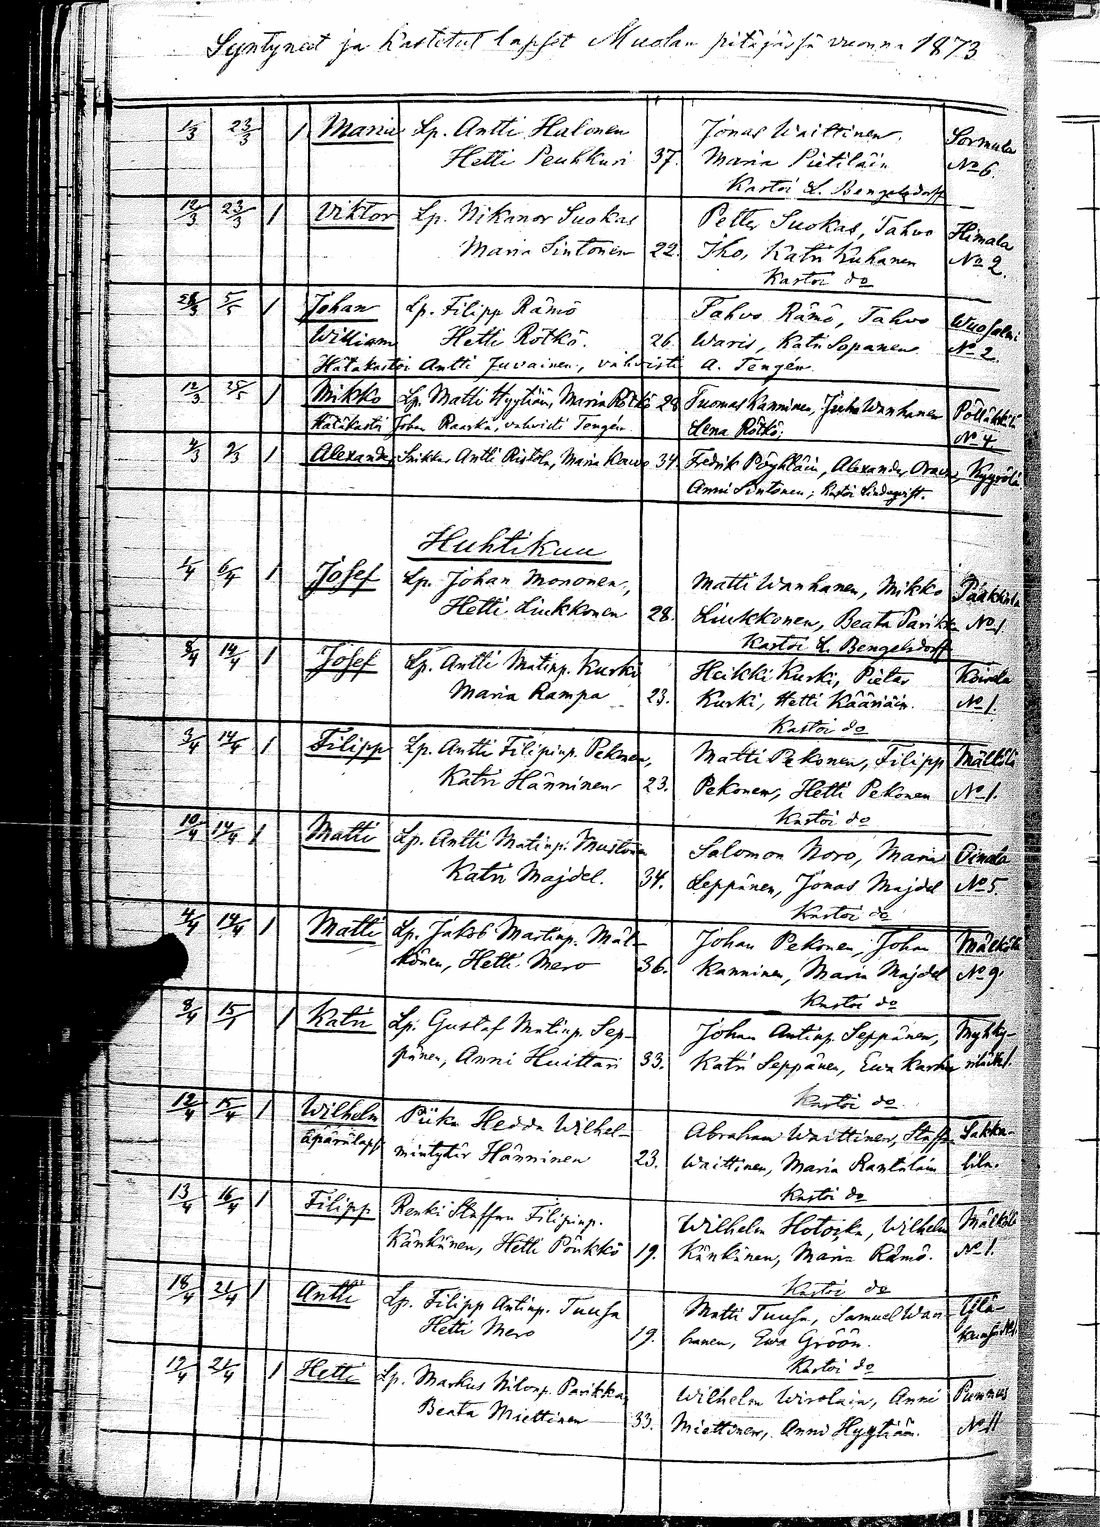 Syntyneet ja kastetut lapset Muolan pitäjässä vuonna 1873
1/3 23/3 1 Maria Lp. Antti Halonen Jonas Waittinen, Sormula
Hetti Peuhkuri 37. Maria Pietiläin No 6.
Kastoi L. Bengelsdorff
12/3 23/3 1 Viktor Lp. Nikanor Suokas Petter Suokas, Tahvo Himala
Maria Sintonen 22. Iho, Katri Kuhanen No 2.
Kastoi do
5/5 1 Johan Lp. Filipp Rämö Tahvo Rämö, Tahvo Wuosalmi
William Hetti Rötkö. 26. Waris, Katri Sopanen No 2.
Hätäkastoi Antti Juvainen, vahvisti A. Tengén.
12/3 25/5 1 Mikko Lp. Matti Hyytiäin, Maria Rötkö 28 Tuomas Kanninen, Juho Wanhanen Pölläkkälä
Hätäkastoi Johan Raaska, vahvisti Tengén. Lena Rötkö; No 4.
4/3 9/3 1 Alexander Antti Ristola, Maria 34 Fredrik Pöyhläin, Alexander Kyyrölä
Anni Sintonen; Kastoi Lindqvist.
Huhtikuu
1/4 6/4 1 Josef Lp. Johan Mononen, Matti Wanhanen, Mikko Pääkkölä
Hetti Liukkonen 28. Liukkonen, Beata Parikka No 1
Kastoi L. Bengelsdorff
8/4 14/4 1 Josef Lp. Antti Matinp. Kurki Heikki Kurki, Pietar
Maria Rampa 23. Kurki, Hetti Kääriäin. No 1.
Kastoi do
3/4 14/4 1 Filipp Lp. Antti Filipinp. Pekonen, Matti Pekonen, Filipp Mälkölä
Katri Hänninen 23. Pekonen, Hetti Pekonen No 1.
Kastoi do
10/4 14/4 1 Matti Lp. Antti Matinp. Mustonen Salomon Noro, Maria Oinala
Katri Majdel. 34. Leppänen, Jonas Majdel No 5.
Kastoi do
4/4 14/4 1 Matti Lp. Jakob Martinp. Mäl- Johan Pekonen, Johan Mälkölä
könen, Hetti Mero 36. Kanninen, Maria Majdel No 9.
Kastoi do
8/4 15/4 1 Katri Lp. Gustaf Matinp. Sep- Johan Antinp. Seppänen, Myhky-
pänen, Anni Huittari 33. Katri Seppänen, Ewa
Kastoi do
12/4 15/4 1 Wilhelm Piika Hedda Wilhel- Abraham Waittinen, Staffan Sakka-
äpärälaps mintytär Hänninen 23. Waittinen, Maria Rantalain lila.
Kastoi do
13/4 16/4 1 Filipp Renki Staffan Filipinp. Wilhelm Hotokka, Wilhelm Mälkölä
Känkänen, Hetti Pönkkö 19. Känkänen, Maria Rämö. No 1.
Kastoi do
18/4 21/4 1 Antti Lp. Filipp Antinp. Tuusa Matti Tuusa, Samuel Wan- Ylä-
Hetti Mero 19. hanen, Ewa Gröön.
Kastoi do
12/4 21/4 1 Hetti Lp. Markus Nilonp. Parikka, Wilhelm Wirolain, Anni Punnus
Beata Miettinen 33. Miettinen, Anni Hyytiäin. No 11